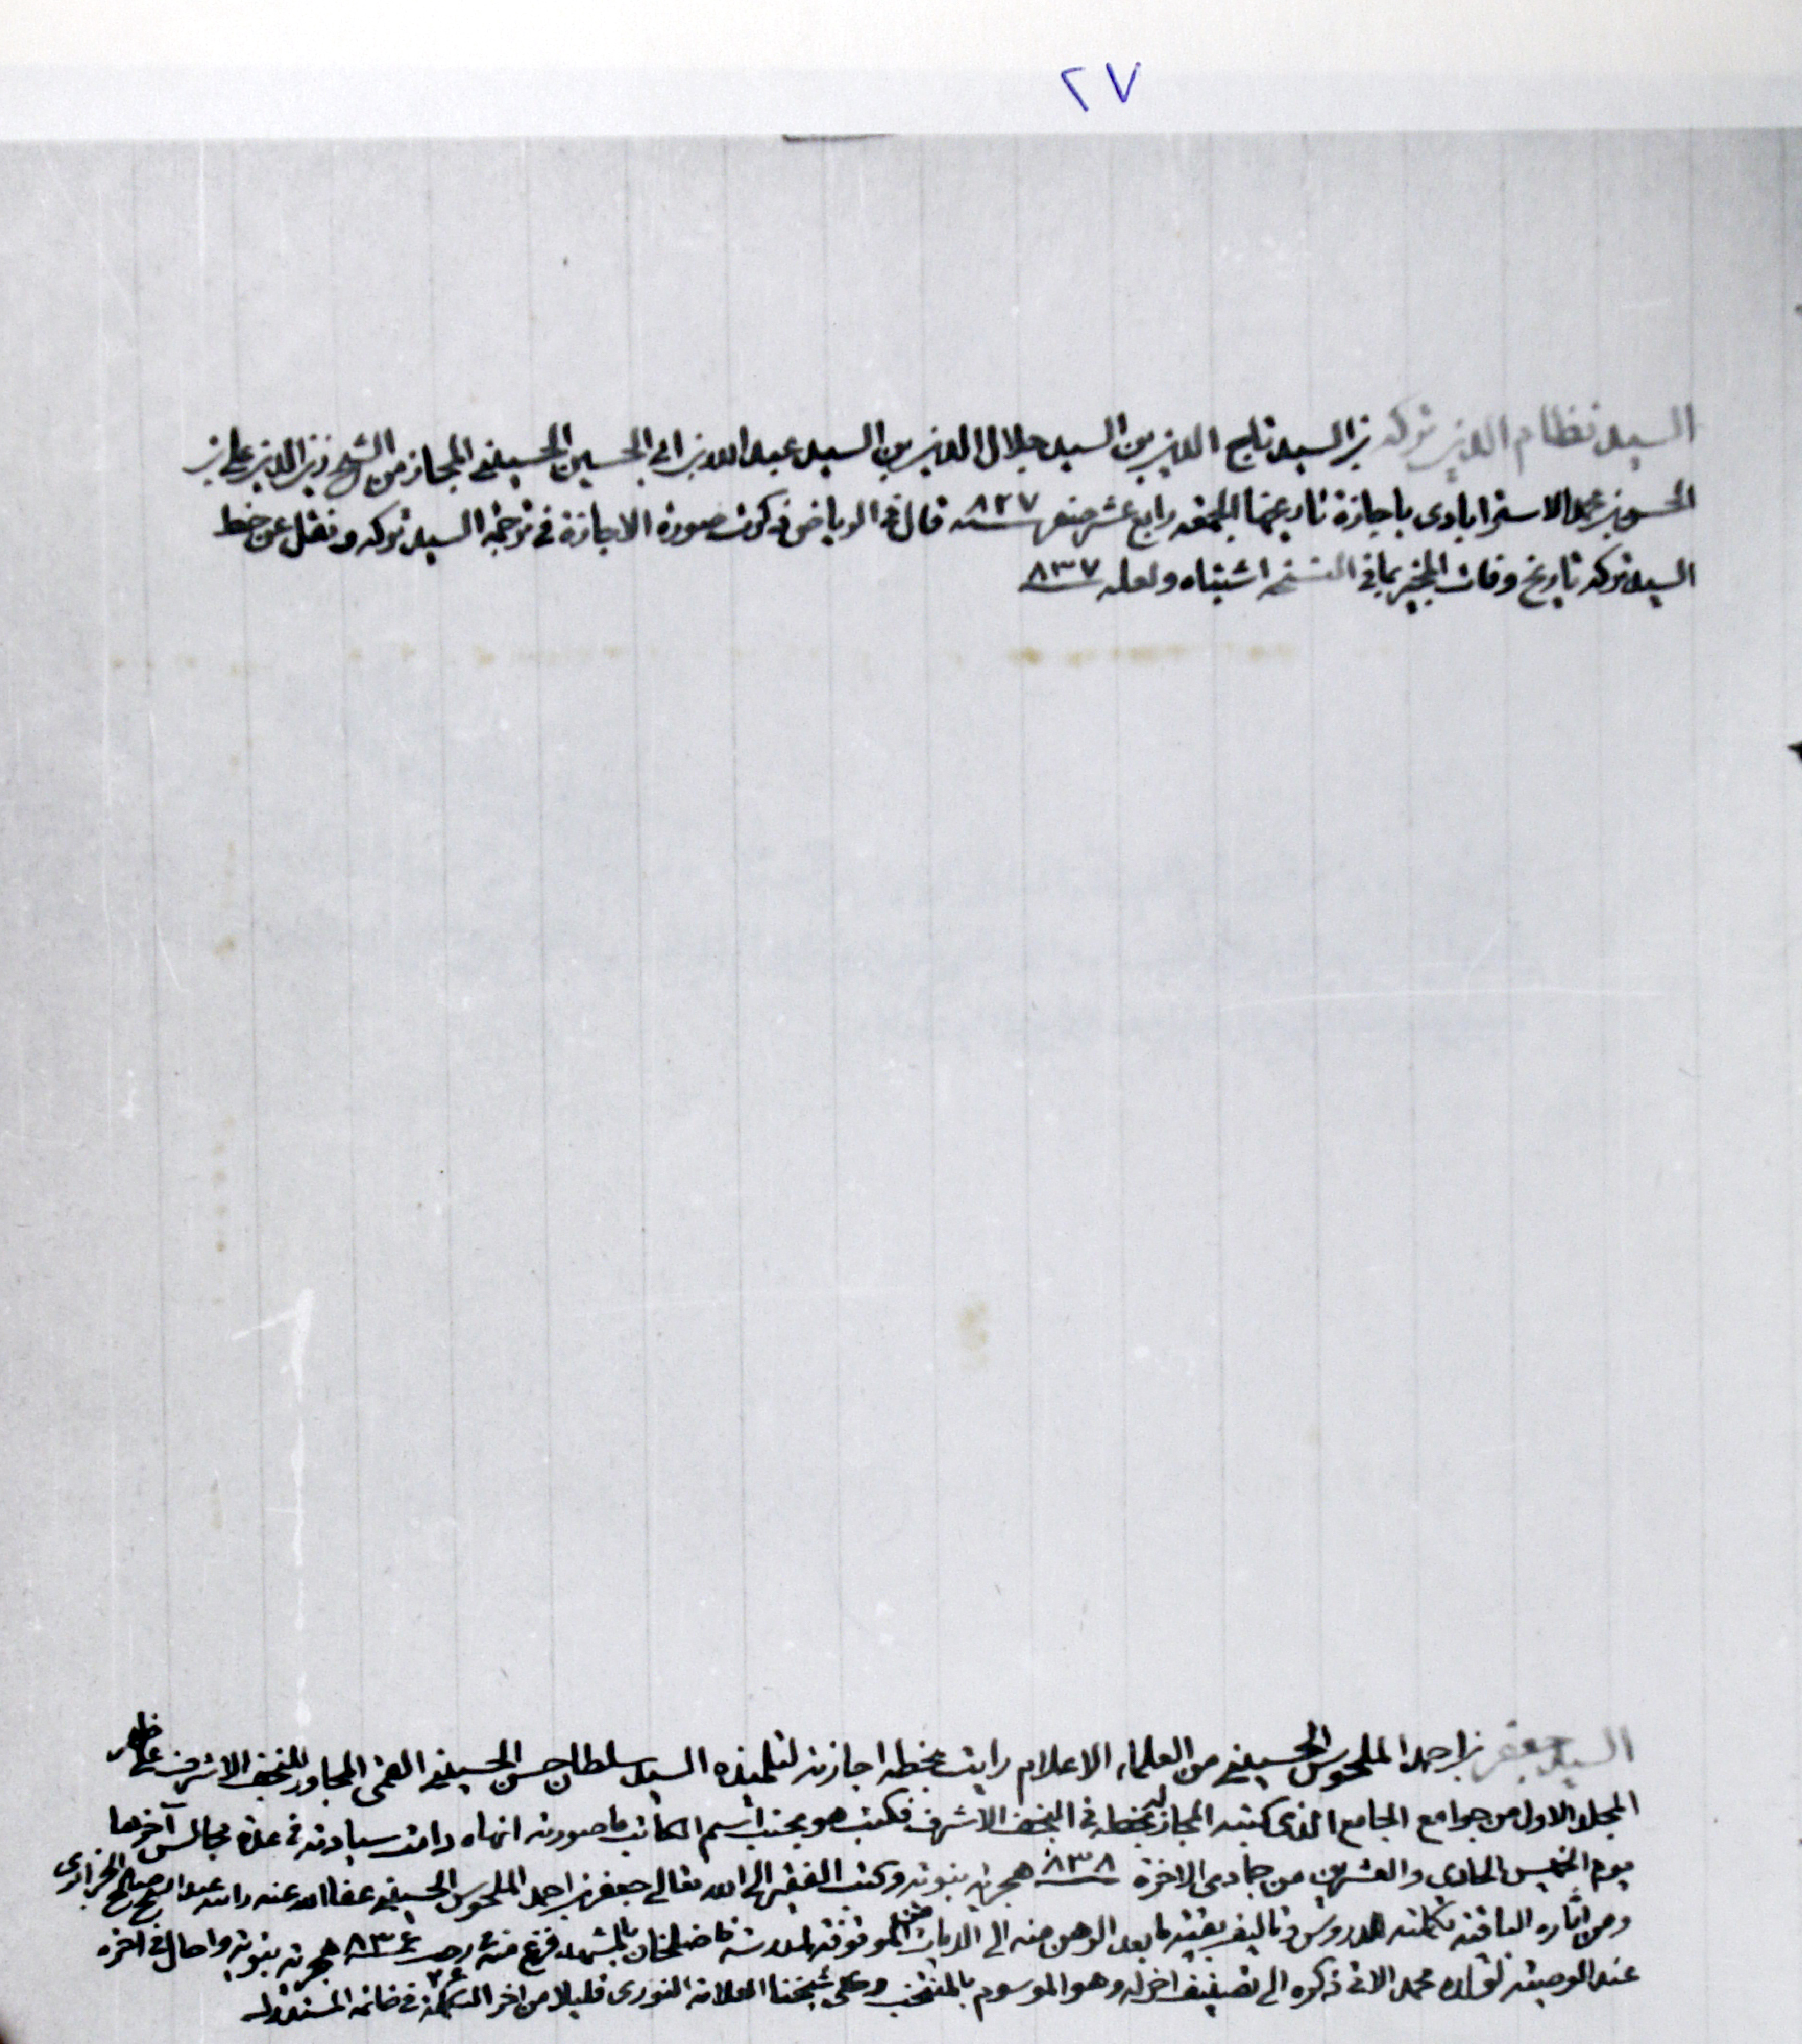 ٢٧
السيد نظام الدين تركه بن السيد تاج الدين بن السيد جلال الدين بن السيد عبد الله بن ابي الحسين الحسيني المجاز من الشيخ زين الدين علي بن
الحسن بن محمد الاسترابادى باجازة تاريخها الجمعة رابع عشر صفر سنة ٨٢٧ قال في الرياض ذكرت صورة الاجازة في ترجمة السيد تركه ونقل عن خط
السيد تركه تاريخ وفات المجيز بما في النسخة اشتباه ولعله ٨٣٧
السيد جعفر بن احمد الملحوس الحسيني من العلماء الاعلام رايت بخطه اجازته لتلميذه السيد سلطان حسن الحسيني القمى المجاور للنجف الاشرف على ظهر
المجلد الاول من جوامع الجامع الذى كتبه المجاز له بخطه في النجف الاشرف فكتب هو بجنب اسم الكاتب ما صورته انهاه دامت سيادته في عدة مجالس آخرها
يوم الخميس الحادى والعشرين من جمادى الاخرة سنة ٨٣٨ هجرية نبوية وكتب الفقير الى الله تعالى جعفر بن احمد الملحوس الحسيني عفا الله عنه
ومن آثاره الباقية تكملته للدروس وتاليف بقيته ما بعد الرهن منه الى الديات الموقوفة لمدرسة فاضلخان بالمشهد فرغ منه رجب ٨٣٦ هجرية نبوية واحال في اخره
عند الوصية لولده محمد الاتى ذكره الى تصنيف اخر له وهو الموسوم بالمنتخب وحكى شيخنا العلامة النورى قليلا من اخر التكملة في خاتمة المستدرك